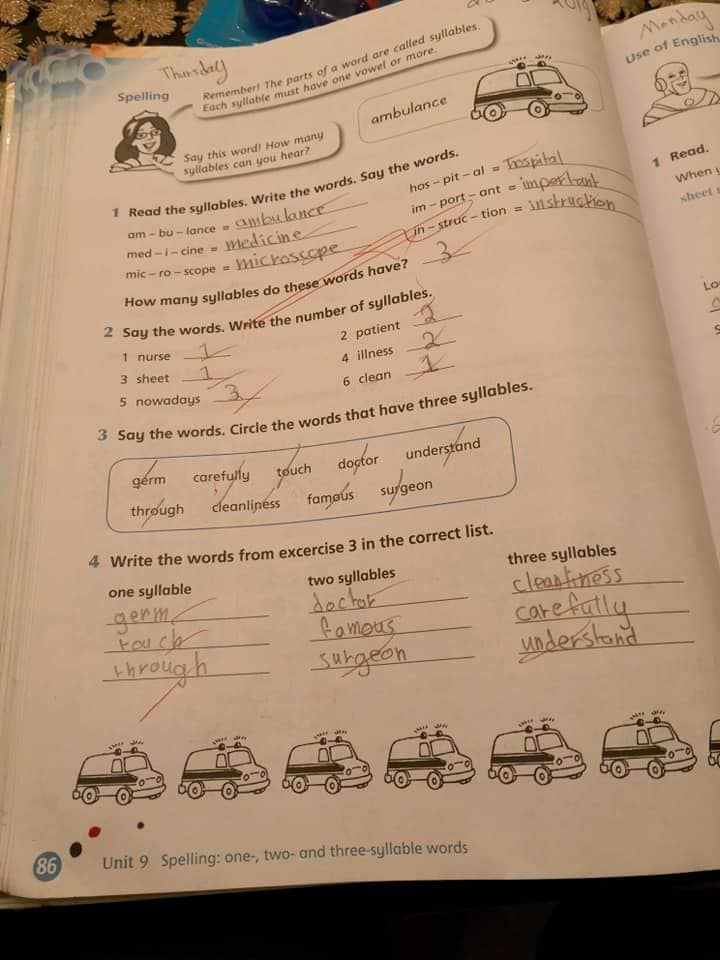 2019
Thursday
Spelling
Remember! The parts of a word are called syllables.
Each syllable must have one vowel or more.
Say this word! How many
syllables can you hear?
ambulance
1 Read the syllables. Write the words. Say the words.
am – bu – lance = ambulance
hos – pit – al = hospital
med – i – cine = medicine
im – port – ant = important
mic – ro – scope = microscope
in – struc – tion = instruction
How many syllables do these words have? 3
2 Say the words. Write the number of syllables.
1 nurse 1
2 patient 2
3 sheet 1
4 illness 2
5 nowadays 3
6 clean 1
3 Say the words. Circle the words that have three syllables.
germ carefully touch doctor understand
through cleanliness famous surgeon
4 Write the words from excercise 3 in the correct list.
one syllable two syllables three syllables
germ doctor cleanliness
touch famous carefully
through surgeon understand
86 Unit 9 Spelling: one-, two- and three-syllable words
Monday
Use of English
1 Read.
When
sheet